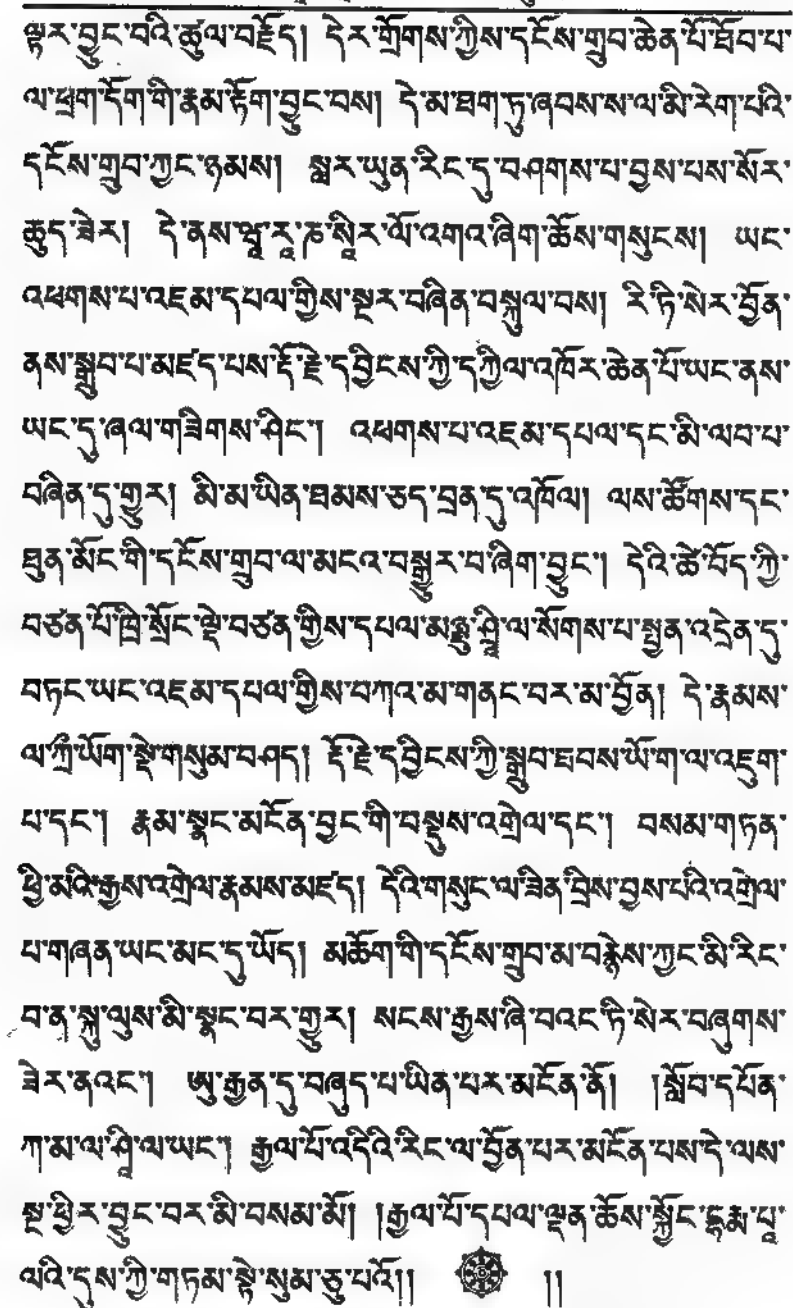 ལྟར་བྱུང་བའི་ཚུལ་བརྗོད། དེར་གྲོགས་ཀྱིས་དངོས་གྲུབ་ཆེན་པོ་ཐོབ་པ་
ལ་ཕྲག་དོག་གི་རྣམ་རྟོག་བྱུང་བས། དེ་མ་ཐག་ཏུ་ཞབས་ས་ལ་མི་རེག་པའི་
དངོས་གྲུབ་ཀྱང་ཉམས། སླར་ཡུན་རིང་དུ་བཤགས་པ་བྱས་པས་སོར་
ཆུད་ཟེར། དེ་ནས་ཝཱ་རཱ་ཎ་སཱིར་ལོ་འགའ་ཞིག་ཆོས་གསུངས། ཡང་
འཕགས་པ་འཇམ་དཔལ་གྱིས་སྔར་བཞིན་བསྐུལ་བས། རི་ཏི་སེར་བྱོན་
ནས་སྒྲུབ་པ་མཛད་པས་རྡོ་རྗེ་དབྱིངས་ཀྱི་དཀྱིལ་འཁོར་ཆེན་པོ་ཡང་ནས་
ཡང་དུ་ཞལ་གཟིགས་ཤིང་། འཕགས་པ་འཇམ་དཔལ་དང་མི་ལབ་པ་
བཞིན་དུ་གྱུར། མི་མ་ཡིན་ཐམས་ཅད་བྲན་དུ་འཁོལ། ལས་ཚོགས་དང་
ཐུན་མོང་གི་དངོས་གྲུབ་ལ་མངའ་བསྒྱུར་བ་ཞིག་བྱུང་། དེའི་ཚེ་བོད་ཀྱི་
བཙན་པོ་ཁྲི་སྲོང་ལྡེ་བཙན་གྱིས་དཔལ་མཉྫུ་ཤྲཱི་ལ་སོགས་པ་སྤྱན་འདྲེན་དུ་
བཏང་ཡང་འཇམ་དཔལ་གྱིས་བཀའ་མ་གནང་བར་མ་བྱོན། དེ་རྣམས་
ལ་ཀྲྀ་ཡོག་སྡེ་གསུམ་བཤད། རྡོ་རྗེ་དབྱིངས་ཀྱི་སྒྲུབ་ཐབས་ཡོ་ག་ལ་འཇུག་
པ་དང་། རྣམ་སྣང་མངོན་བྱང་གི་བསྡུས་འགྲེལ་དང་། བསམ་གཏན་
ཕྱི་མའི་རྒྱས་འགྲེལ་རྣམས་མཛད། དེའི་གསུང་ལ་ཟིན་བྲིས་བྱས་པའི་འགྲེལ་
པ་གཞན་ཡང་མང་དུ་ཡོད། མཆོག་གི་དངོས་གྲུབ་མ་བརྙེས་ཀྱང་མི་རིང་
བ་ན་སྐུ་ལུས་མི་སྣང་བར་གྱུར། སངས་རྒྱས་ཞི་བའང་ཏི་སེར་བཞུགས་
ཟེར་ནའང་། ཨུ་རྒྱན་དུ་བཞུད་པ་ཡིན་པར་མངོན་ནོ། །སློབ་དཔོན་
ཀ་མ་ལ་ཤཱི་ལ་ཡང་། རྒྱལ་པོ་འདིའི་རིང་ལ་བྱོན་པར་མངོན་པས་དེ་ལས་
སྔ་ཕྱིར་བྱུང་བར་མི་བསམ་མོ། །རྒྱལ་པོ་དཔལ་ལྡན་ཆོས་སྐྱོང་དྷརྨ་པཱ་
ལའི་དུས་ཀྱི་གཏམ་སྟེ་སུམ་ཅུ་པའོ།། །།